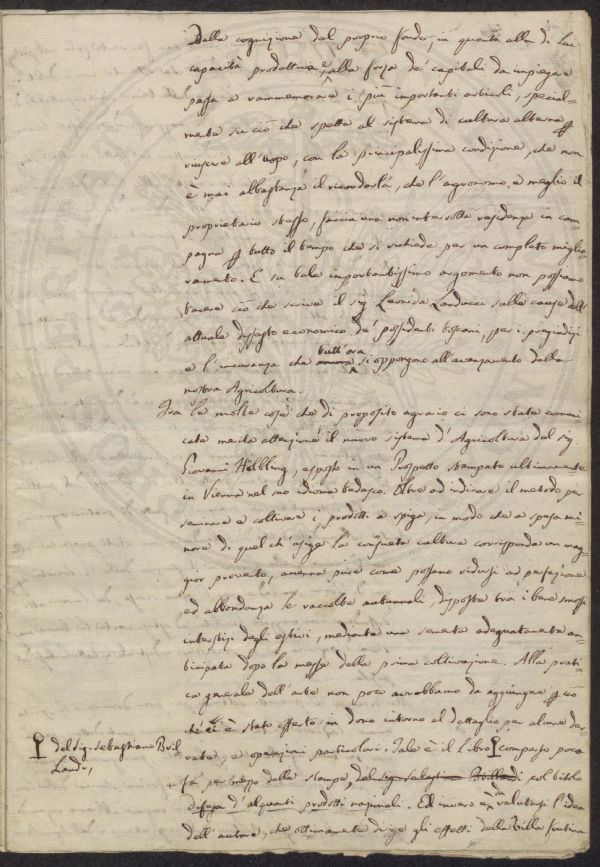 Dalla cognizione del proprio fondo, in quanto alla di lui
capacità produttiva e alla forza de' capitali da impiegare
passa a rammemorare i più importanti articoli, special-
mente su ciò che spetta al sistema di cultura alterna p
riuscire all'uopo, con la principalissima condizione, che non
è mai abbastanza il ricordarla, che l'agronomo, o meglio il
proprietario stesso, faccia una non interrotta residenza in cam-
pagna p tutto il tempo che si richiede per un completo miglio-
ramento. E su tale importantissimo argomento non possiamo
tacere ciò che scrive il sig. Leonida Landucci sulle cause dell'
attuale dissesto economico de' possidenti toscani, per i pregiudizi
e l'incuranza che tutt'ora si oppongono all'avanzamento della
nostra Agricoltura.
Tra le molte cose che di proposito agrario ci sono state comuni-
cate merita attenzione il nuovo sistema d'Agricoltura del sig.
Giovanni Hëlbling, esposto in un Prospetto stampato ultimamente
in Vienna nel suo idioma tedesco. Oltre ad indicare il metodo per
seminare e coltivare i prodotti a spiga, in modo che a spesa mi-
nore di quel ch'esige la consueta cultura corrisponda un mag-
gior provento, accenna pure come possano ridursi a perfezione
ed abbondanza le raccolte autunnali, disposte tra i bene smossi
interstizi degli estivi, mediante una sementa adeguatamente an-
ticipata dopo la messe della prima coltivazione. Alla prati-
ca generale dell'arte non poco avrebbamo da aggiungere p ciò
che ci è stato offerto in dono intorno al dettaglio per alcune der-
rate, e operazioni particolari. Tale è il Libro comparso poco
del sig. Sebastiano Bril-
landi,
fa per mezzo delle stampe, del sig. Sebastiano Brillandi col titolo
difesa d'alquanti prodotti nazionali. Ed invero è da valutarsi l'idea
dell'autore, che ottimamente dirige gli effetti della Villa